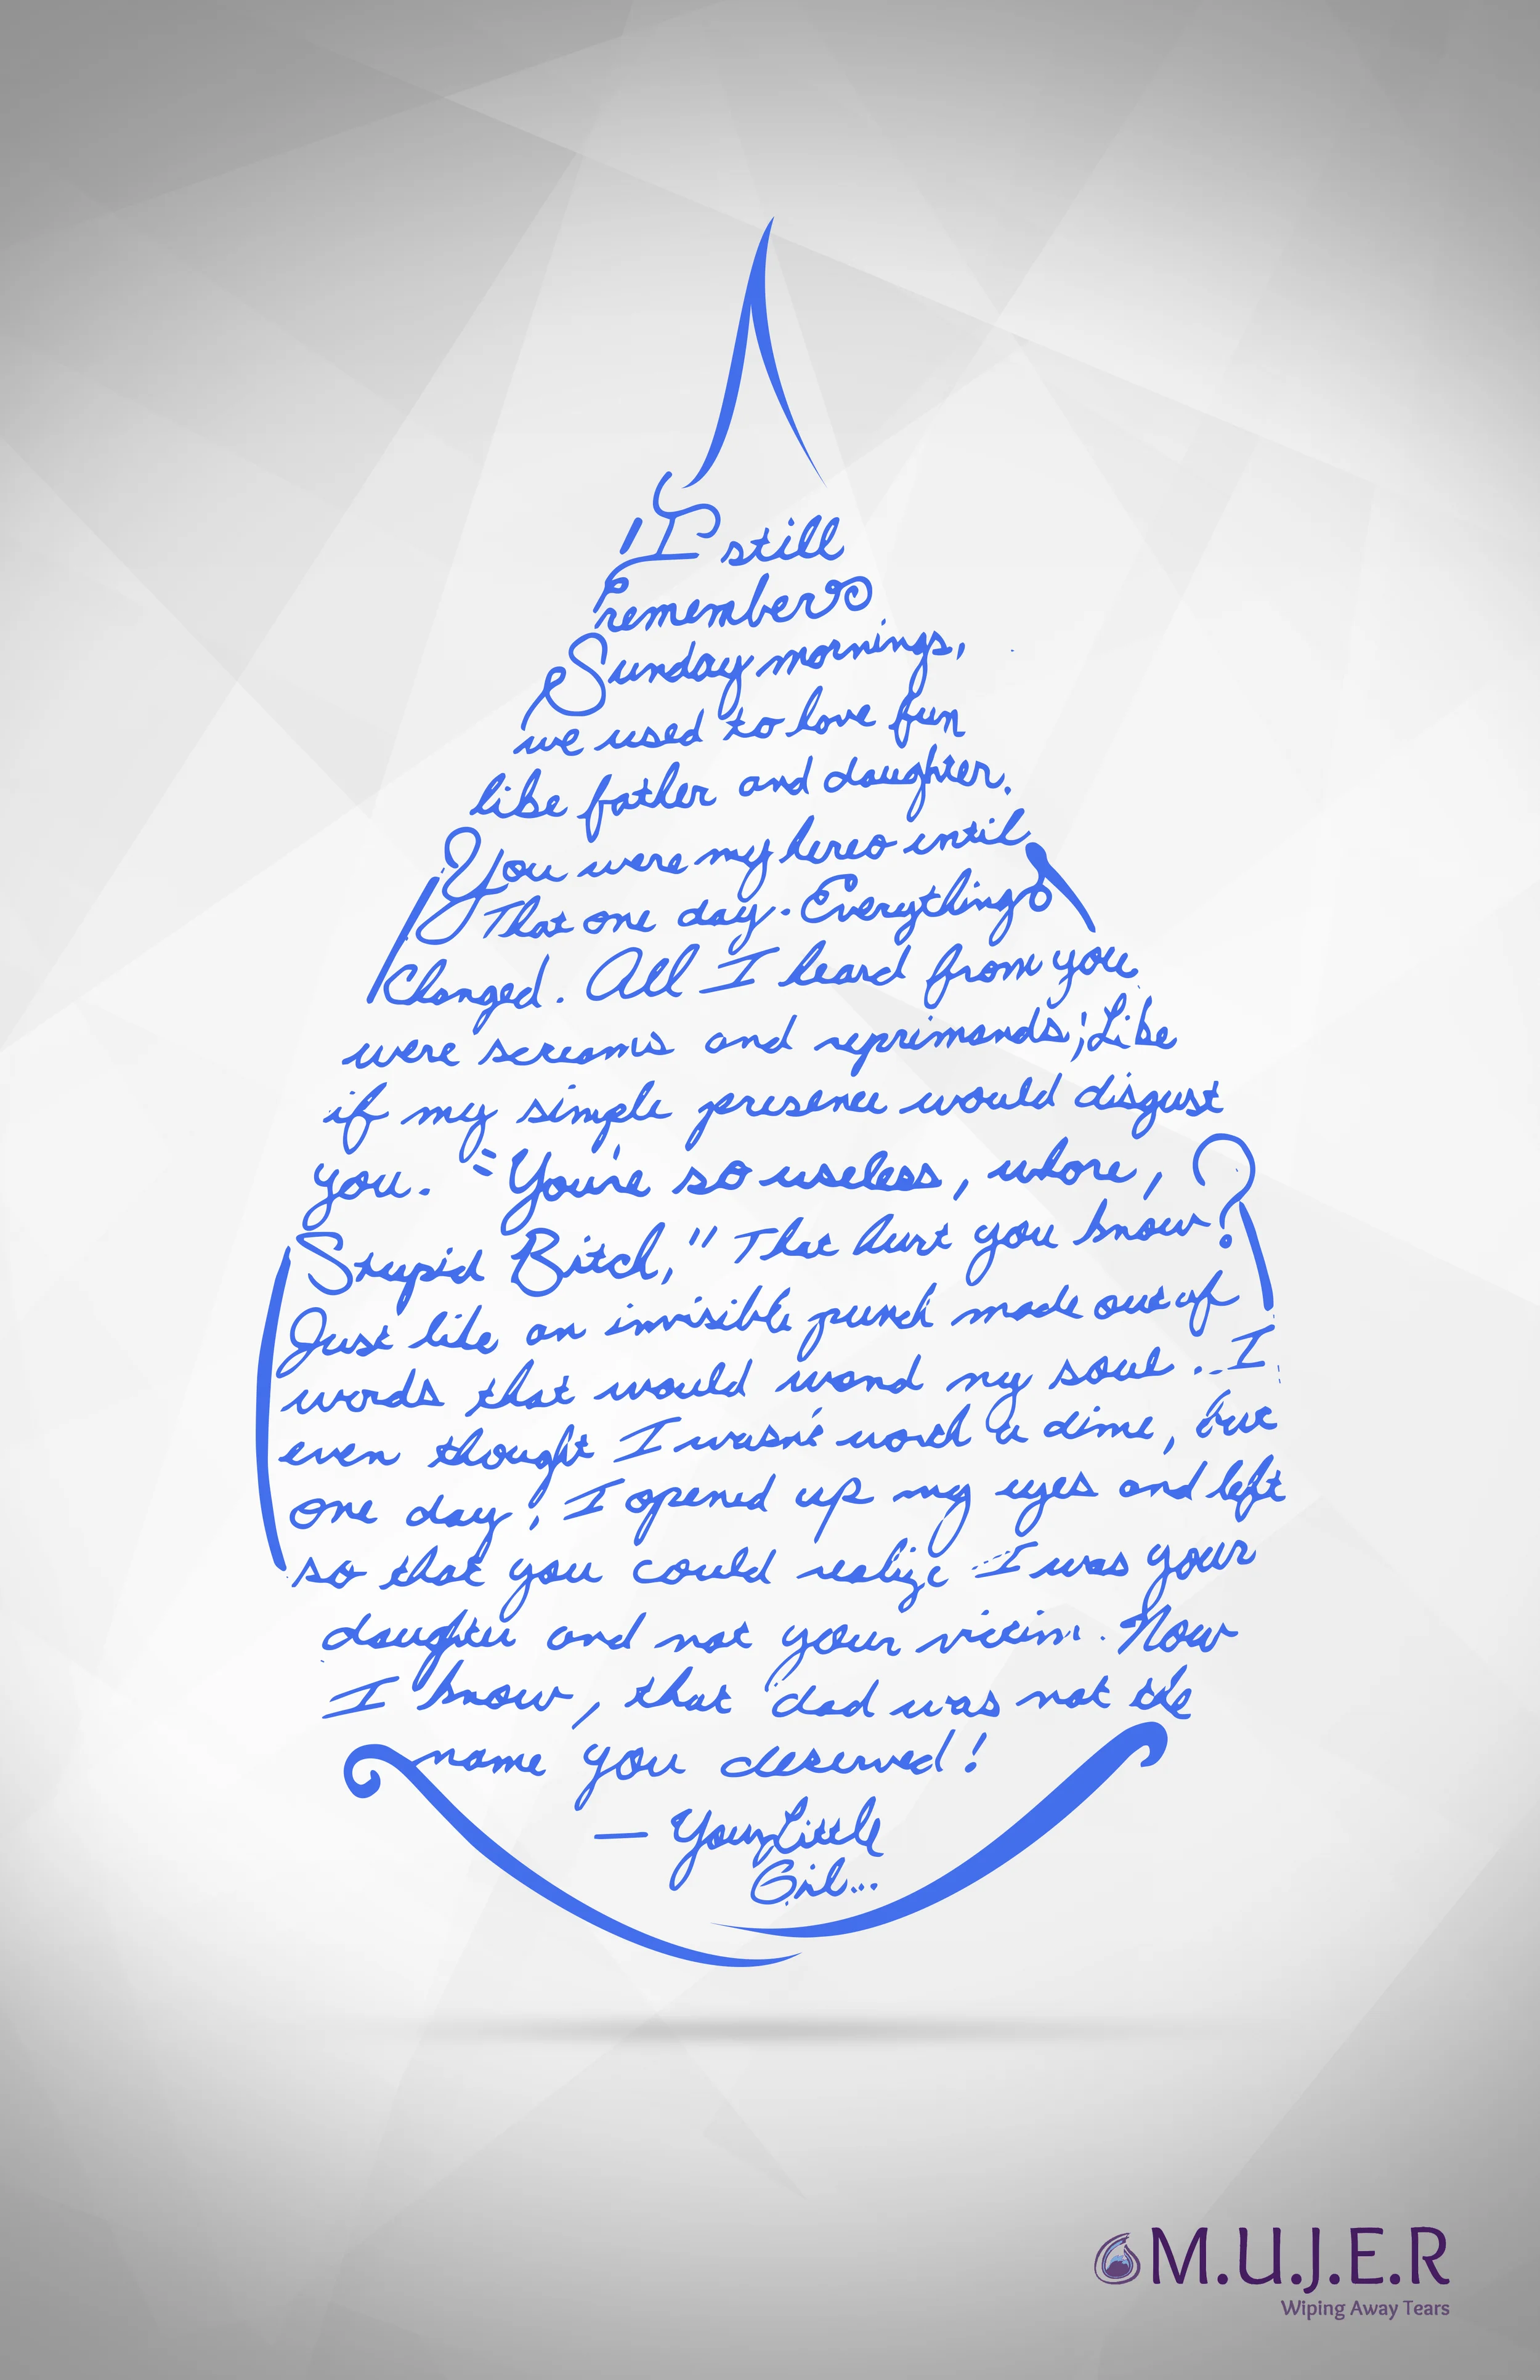 "I still
remember
Sunday mornings,
we used to love fun
like father and daughter.
You were my hereo until
That one day. Everything
Changed. All I heard from you
were screams and reprimands; Like
if my simple presence would disgust
you. "You're so useless, whore,
Stupid Bitch," That hurt you know?
Just like an invisible punch made out of
words that would wond my soul... I
even thought I wasn't worth a dime, but
one day, I opened up my eyes and left
so that you could realize I was your
daughter and not your victim. Now
I know, that dad was not the
name you deserved!
— Your Little
Girl...
M.U.J.E.R
Wiping Away Tears